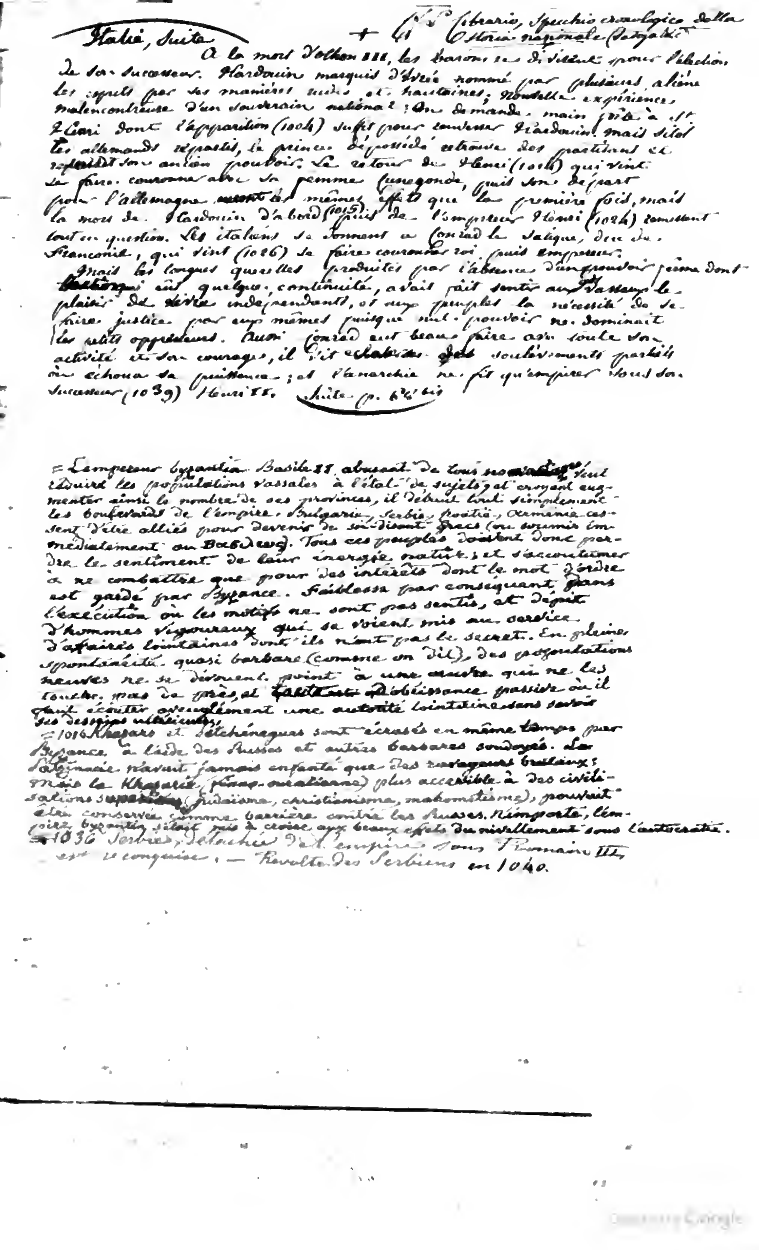 Italie, Suite + Cibrario, Specchio cronologico della
Storia nazionale
À la mort d'Othon III, les barons se divisent pour l'élection
de son successeur. Hardouin marquis d'Ivrée nommé par plusieurs, aliène
les esprits par ses manières rudes et hautaines; nouvelle expérience
malencontreuse d'un souverain national! On demande main forte à St
Henri dont l'apparition (1004) suffit pour renverser Hardouin. mais sitôt
les allemands repartis, le prince dépossédé retrouve des partisans et
son ancien pouvoir. Le retour de Henri (1014) qui vint
se faire couronner avec sa femme Cunegonde, puis son départ
pour l'allemagne les mêmes effets que la première fois, mais
la mort de Hardouin d'abord (1015) puis de l'empereur Henri (1024) remettent
tout en question. Les italiens se donnent à Conrad le Salique, duc de
Franconie, qui vint (1026) se faire couronner roi puis empereur.
Mais les longues querelles produites par l'absence d'un pouvoir ferme dont
eut quelque continuité, avait fait sentir aux vassaux le
plaisir de vivre indépendants, et aux peuples la nécessité de se
faire justice par eux mêmes puisque nul pouvoir ne dominait
les petits oppresseurs. Aussi Conrad eut beau faire avec toute son
activité et son courage, il vit des soulèvements partiels
où échoua sa puissance; et l'anarchie ne fit qu'empirer sous son
successeur (1039) Henri III. Suite p. 64 bis
= L'empereur byzantin Basile II, abusant de tous veut
réduire les populations vassales à l'état de sujets, et croyant aug-
menter ainsi le nombre de ses provinces, il détruit tout simplement
les boulevards de l'empire. Bulgarie, Serbie, Croatie, Arménie ces-
sent d'être alliés pour devenir de soi-disant grecs (ou soumis im-
médiatement au Βασιλευς). Tous ces peuples doivent donc per-
dre le sentiment de leur énergie native; et s'accoutumer
à ne combattre que pour des intérêts dont le mot d'ordre
est gardé par Byzance. Faiblesse par conséquent dans
l'exécution où les motifs ne sont pas sentis, et dépit
d'hommes vigoureux qui se voient mis au service
d'affaires lointaines dont ils n'ont pas le secret. En pleine
spontanéité quasi barbare (comme on dit), des populations
neuves ne se dévouent point à une œuvre qui ne les
touche pas de près, et d'obéissance passive où il
faut écouter aveuglément une autorité lointaine sans savoir
ses desseins ultérieurs.
= 1016 Khazars et Petchénègues sont écrasés en même temps par
Byzance à l'aide des Russes et autres barbares soudoyés. La
n'avait jamais enfanté que des ravageurs brutaux;
mais la Khazarie (finno-ouralienne) plus accessible à des civili-
sations (judaïsme, christianisme, mahométisme), pouvait
être conservée comme barrière contre les Russes. N'importe, l'em-
pire byzantin s'était mis à croire aux beaux effets du nivellement sous l'autocratie.
= 1036 Serbie, détachée de l'empire sous Romain III,
est reconquise. — Révolte des Serbiens en 1040.